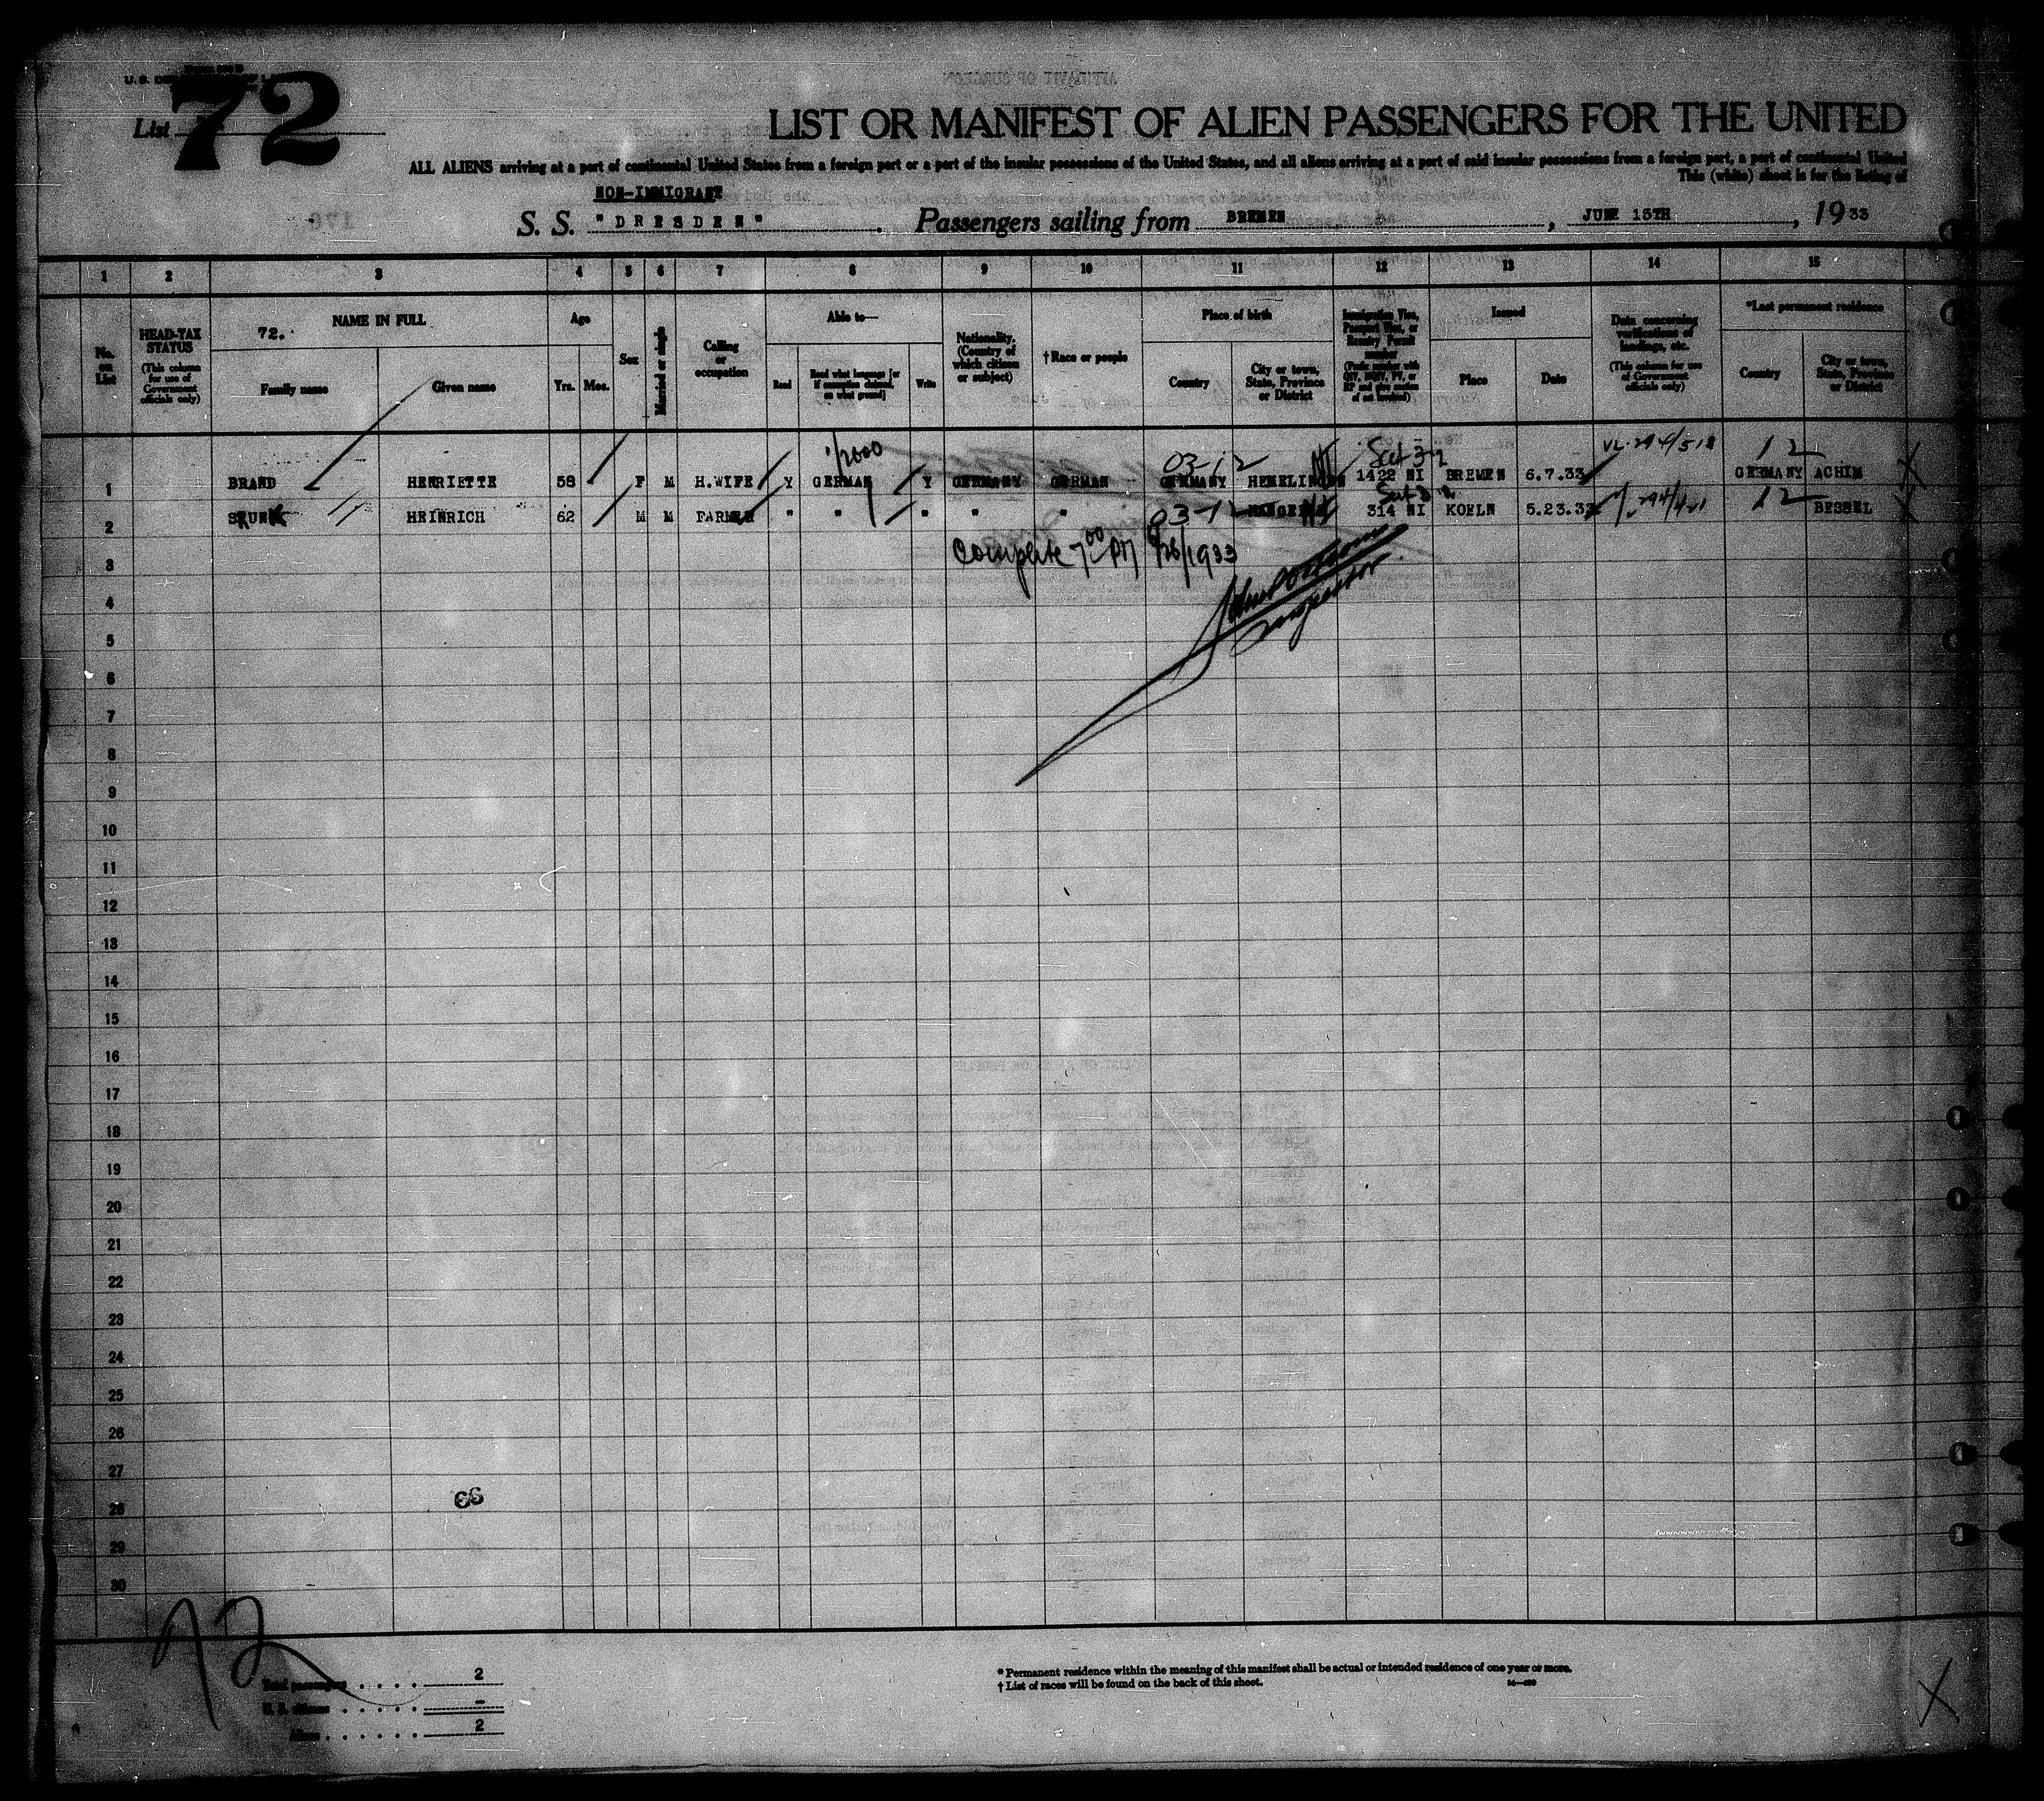 72
List
LIST OR MANIFEST OF ALIEN PASSENGERS FOR THE UNITED
ALL ALIENS arriving at a port of continental United States from a foreign port or a port of the insular possessions of the United States, and all aliens arriving at a port of said insular possessions from a foreign port, a port of continental United
This (white) sheet is for the listing of
NON-IMMIGRANT
S. S. "DRESDEN". Passengers sailing from BREMEN, JUNE 15TH, 1933
1 2 3 4 5 6 7 8 9 10 11 12 13 14 15
No. on List
HEAD-TAX STATUS
(This column for use of Government officials only)
72. NAME IN FULL
Family name Given name
Age
Yrs. Mos.
Sex
Married or single
Calling or occupation
Able to—
Read
Read what language [or if exemption claimed, on what ground]
Write
Nationality. (Country of which citizen or subject)
† Race or people
Place of birth
Country
City or town, State, Province or District
Immigration Visa, Passport Visa, or Reentry Permit number
Issued
Place Date
Data concerning verifications of landings, etc.
(This column for use of Government officials only)
*Last permanent residence
Country
City or town, State, Province or District
03-12 12
1 BRAND HENRIETTE 58 F M H.WIFE Y GERMAN Y GERMANY GERMAN GERMANY 1422 NI BREMEN 6.7.33 GERMANY ACHIM
2 HEINRICH 62 M M FARMER " " " " " 314 NI KOELN 5.23.33 12 BESSEL
Complete 7 00 PM 6/26/1933
Inspector
3
4
5
6
7
8
9
10
11
12
13
14
15
16
17
18
19
20
21
22
23
24
25
26
27
28
29
30
72
Total passengers . . . . . 2
U. S. citizens . . . . . –
Aliens . . . . . 2
* Permanent residence within the meaning of this manifest shall be actual or intended residence of one year or more.
† List of races will be found on the back of this sheet.